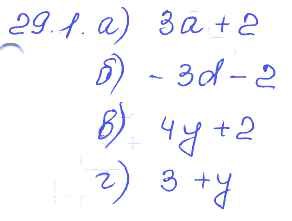 29.1. а) 3a + 2
б) - 3d - 2
в) 4y + 2
г) 3 + y